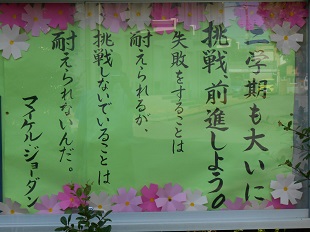 二学期も大いに
挑戦、前進しよう。
失敗をすることは
耐えられるが、
挑戦しないでいることは
耐えられないんだ。
マイケル・ジョーダン